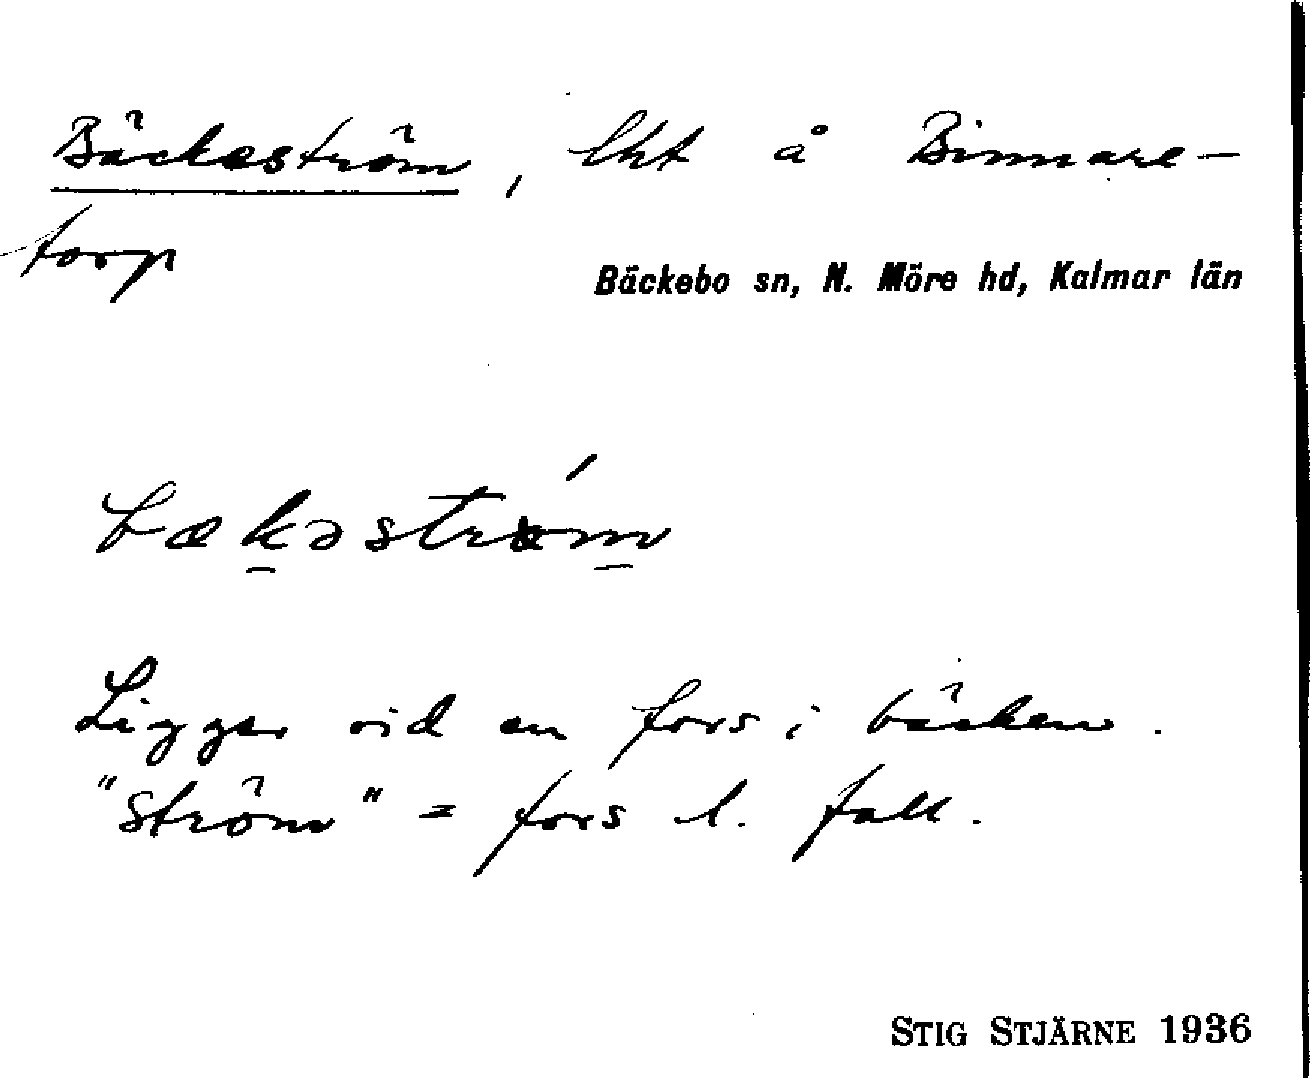 Bäckeström, lht å Binnare-
torp
Bäckebo sn, N. Möre hd, Kalmar län
bækəström
Ligger vid en fors i bäcken.
"Ström" = fors l. fall.
STIG STJÄRNE 1936